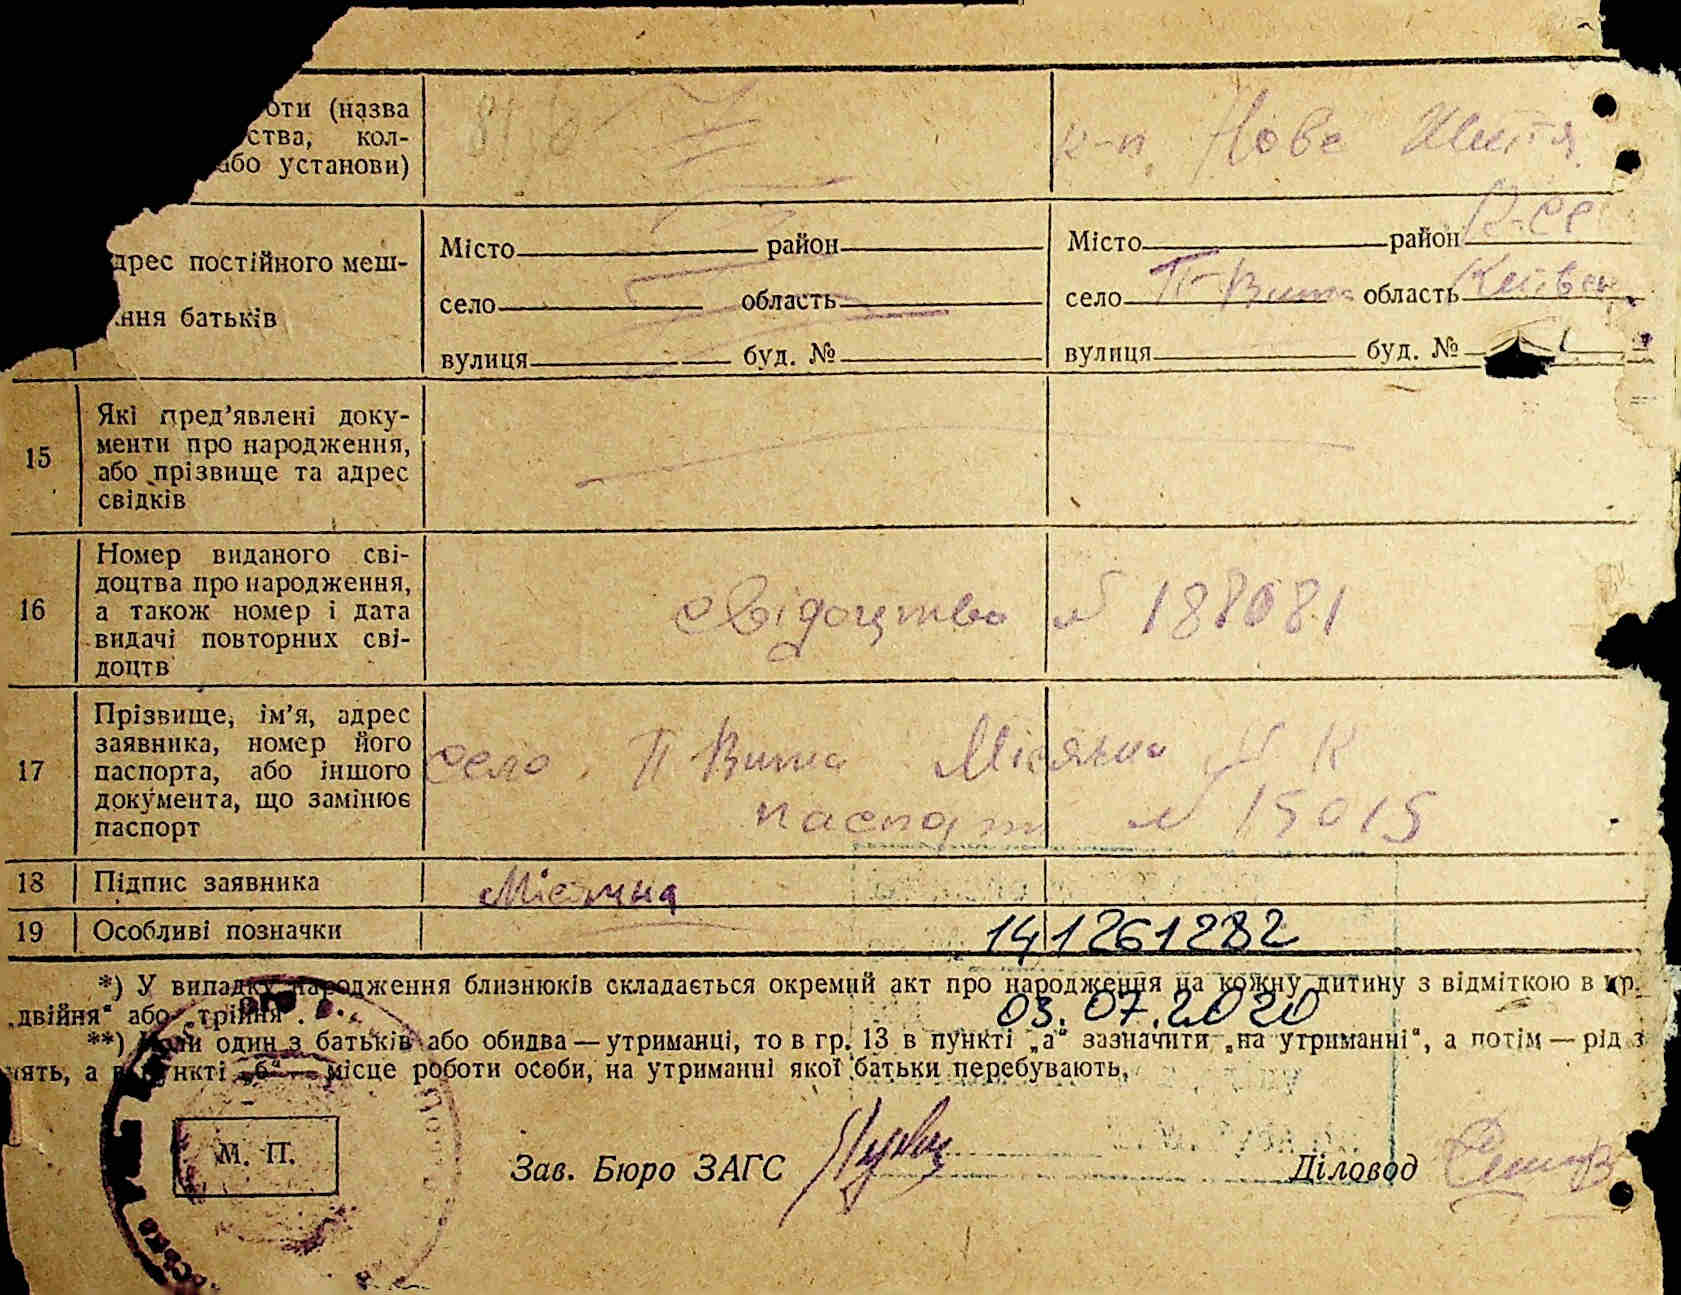 оти (назва
ства, кол-
або установи)
к-п. Нове Життя
дрес постійного меш-
ння батьків
Місто район
село область
вулиця буд. №
Місто район К-Св
село П-Вита область Київськ
вулиця буд. №
15
Які пред’явлені доку-
менти про народження,
або прізвище та адрес
свідків
16
Номер виданого сві-
доцтва про народження,
а також номер і дата
видачі повторних сві-
доцтв
Свідоцтво № 188081
17
Прізвище, ім’я, адрес
заявника, номер його
паспорта, або іншого
документа, що замінює
паспорт
село П Вита
паспорт № 15015
18 Підпис заявника
19 Особливі позначки 141261282
*) У випадку народження близнюків складається окремий акт про народження на кожну дитину з відміткою в гр.
„двійня“ або „трійня“.
03.07.2020
**) Коли один з батьків або обидва — утриманці, то в гр. 13 в пункті „а“ зазначити „на утриманні“, а потім — рід з
нять, а в пункті „б“ — місце роботи особи, на утриманні якої батьки перебувають.
М. П.
Зав. Бюро ЗАГС Діловод